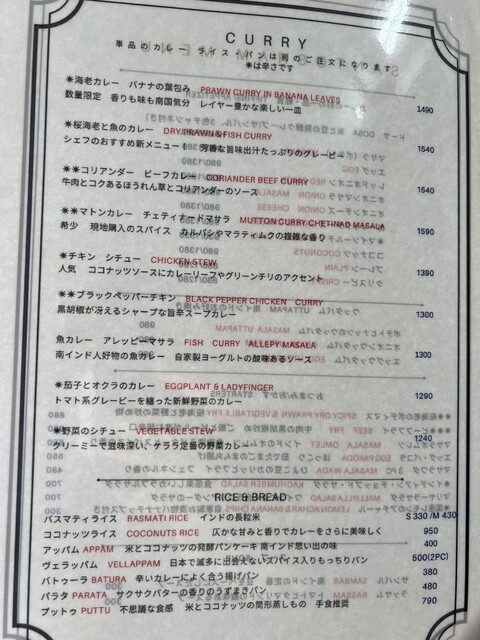 CURRY
単品のカレー ライス・パンは別のご注文になります
✴は辛さです
✴海老カレー バナナの葉包み PRAWN CURRY IN BANANA LEAVES
数量限定 香りも味も南国気分 レイヤー豊かな楽しい一皿 1490
✴桜海老と魚のカレー DRY PRAWN & FISH CURRY
シェフのおすすめ新メニュー! 芳香な旨味出汁たっぷりのグレービー 1540
✴✴コリアンダー ビーフカレー CORIANDER BEEF CURRY
牛肉とコクあるほうれん草とコリアンダーのソース 1540
✴✴マトンカレー チェティナードマサラ MUTTON CURRY CHETINAD MASALA
希少 現地購入のスパイス カルパシやマラティムクの複雑な香り 1590
✴チキン シチュー CHICKEN STEW
人気 ココナッツソースにカレーリーフやグリーンチリのアクセント 1390
✴✴ブラックペッパーチキン BLACK PEPPER CHICKEN CURRY
黒胡椒が冴えるシャープな旨辛スープカレー 1300
魚カレー アレッピーマサラ FISH CURRY ALLEPY MASALA
南インド人好物の魚カレー 自家製ヨーグルトの酸味あるソース 1300
✴茄子とオクラのカレー EGGPLANT & LADYFINGER
トマト系グレービーを纏った新鮮野菜のカレー 1290
✴野菜のシチュー VEGETABLE STEW
クリーミーで滋味深い、ケララ定番の野菜カレー 1240
RICE & BREAD
バスマティライス BASMATI RICE インドの長粒米 S 330 /M 430
ココナッツライス COCONUTS RICE 仄かな甘みと香りでカレーをさらに美味しく 950
アッパム APPAM 米とココナッツの発酵パンケーキ 南インド思い出の味 400
ヴェラッパム VELLAPPAM 日本で滅多に出会えないスパイス入りもっちりパン 500(2PC)
バトゥーラ BATURA 辛いカレーによく合う揚げパン 380
パラタ PARATA サクサクバターの香りのうずまきパン 480
プットゥ PUTTU 不思議な食感 米とココナッツの筒形蒸しもの 手食推奨 790